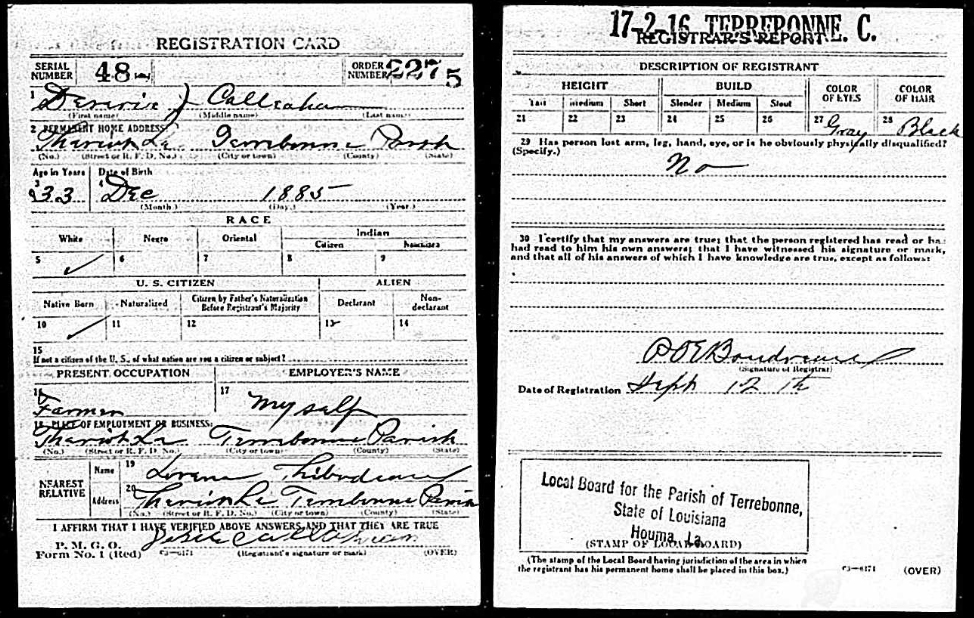 REGISTRATION CARD
SERIAL NUMBER 48
ORDER NUMBER 2275
1 J Callahan
(First name) (Middle name) (Last name)
2 PERMANENT HOME ADDRESS:
Theriot La Terrebonne Parish
(No.) (Street or R. F. D. No.) (City or town) (County) (State)
Age in Years Date of Birth
3 33 4 Dec 1885
(Month.) (Day.) (Year.)
RACE
White Negro Oriental Indian
Citizen Noncitizen
5 ✓ 6 7 8 9
U. S. CITIZEN ALIEN
Native Born Naturalized Citizen by Father's Naturalization Before Registrant's Majority Declarant Non-declarant
10 ✓ 11 12 13 14
15
If not a citizen of the U. S., of what nation are you a citizen or subject?
PRESENT OCCUPATION EMPLOYER'S NAME
16 Farmer 17 My self
18 PLACE OF EMPLOYMENT OR BUSINESS:
Theriot La Terrebonne Parish
(No.) (Street or R. F. D. No.) (City or town) (County) (State)
NEAREST RELATIVE
Name 19 Thibodeaux
Address 20 Theriot La Terrebonne Parish
(No.) (Street or R. F. D. No.) (City or town) (County) (State)
I AFFIRM THAT I HAVE VERIFIED ABOVE ANSWERS AND THAT THEY ARE TRUE
P. M. G. O.
Form No. 1 (Red) 03—6171 (Registrant's signature or mark) (OVER)
17-2-16 TERREBONNE. C.
REGISTRAR'S REPORT
DESCRIPTION OF REGISTRANT
HEIGHT BUILD COLOR OF EYES COLOR OF HAIR
Tall Medium Short Slender Medium Stout
21 22 23 24 25 26 27 Gray 28 Black
29 Has person lost arm, leg, hand, eye, or is he obviously physically disqualified?
(Specify.)
No
30 I certify that my answers are true; that the person registered has read or has
had read to him his own answers; that I have witnessed his signature or mark,
and that all of his answers of which I have knowledge are true, except as follows:
(Signature of Registrar)
Date of Registration Sept 12 th
Local Board for the Parish of Terrebonne,
State of Louisiana
Houma, La.
(STAMP OF LOCAL BOARD)
(The stamp of the Local Board having jurisdiction of the area in which
the registrant has his permanent home shall be placed in this box.)
03—6171 (OVER)